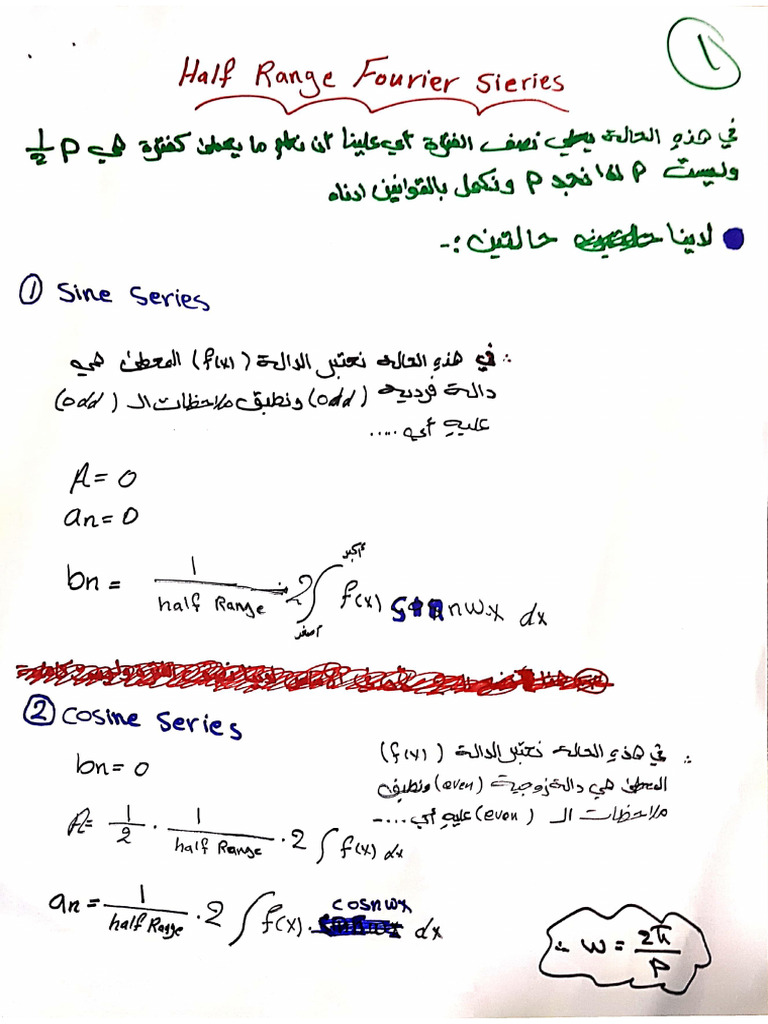 1
Half Range Fourier Sieries
في هذهِ الحالة يعطي نصف الفترة أي علينا ان نعلم ما يعطى كفترة هي ½ P
وليست P لذا نجد P ونكمل بالقوانين ادناه
● لدينا حالتين :-
① Sine Series
∴ في هذهِ الحالة نعتبر الدالة (f(x)) المعطى هي
دالة فرديه (odd) ونطبق ملاحظات الـ (odd)
عليهِ أي .....
A = 0
an = 0
bn = 1/half Range 2 ∫ f(x) sin nwx dx
أكبر
أصغر
② Cosine Series
∴ في هذهِ الحالة نعتبر الدالة (f(x))
المعطى هي دالة زوجية (even) ونطبق
ملاحظات الـ (even) عليهِ أي ....-
bn = 0
A = 1/2 · 1/half Range · 2 ∫ f(x) dx
an = 1/half Range · 2 ∫ f(x) · cosnwx dx
∴ w = 2π/P